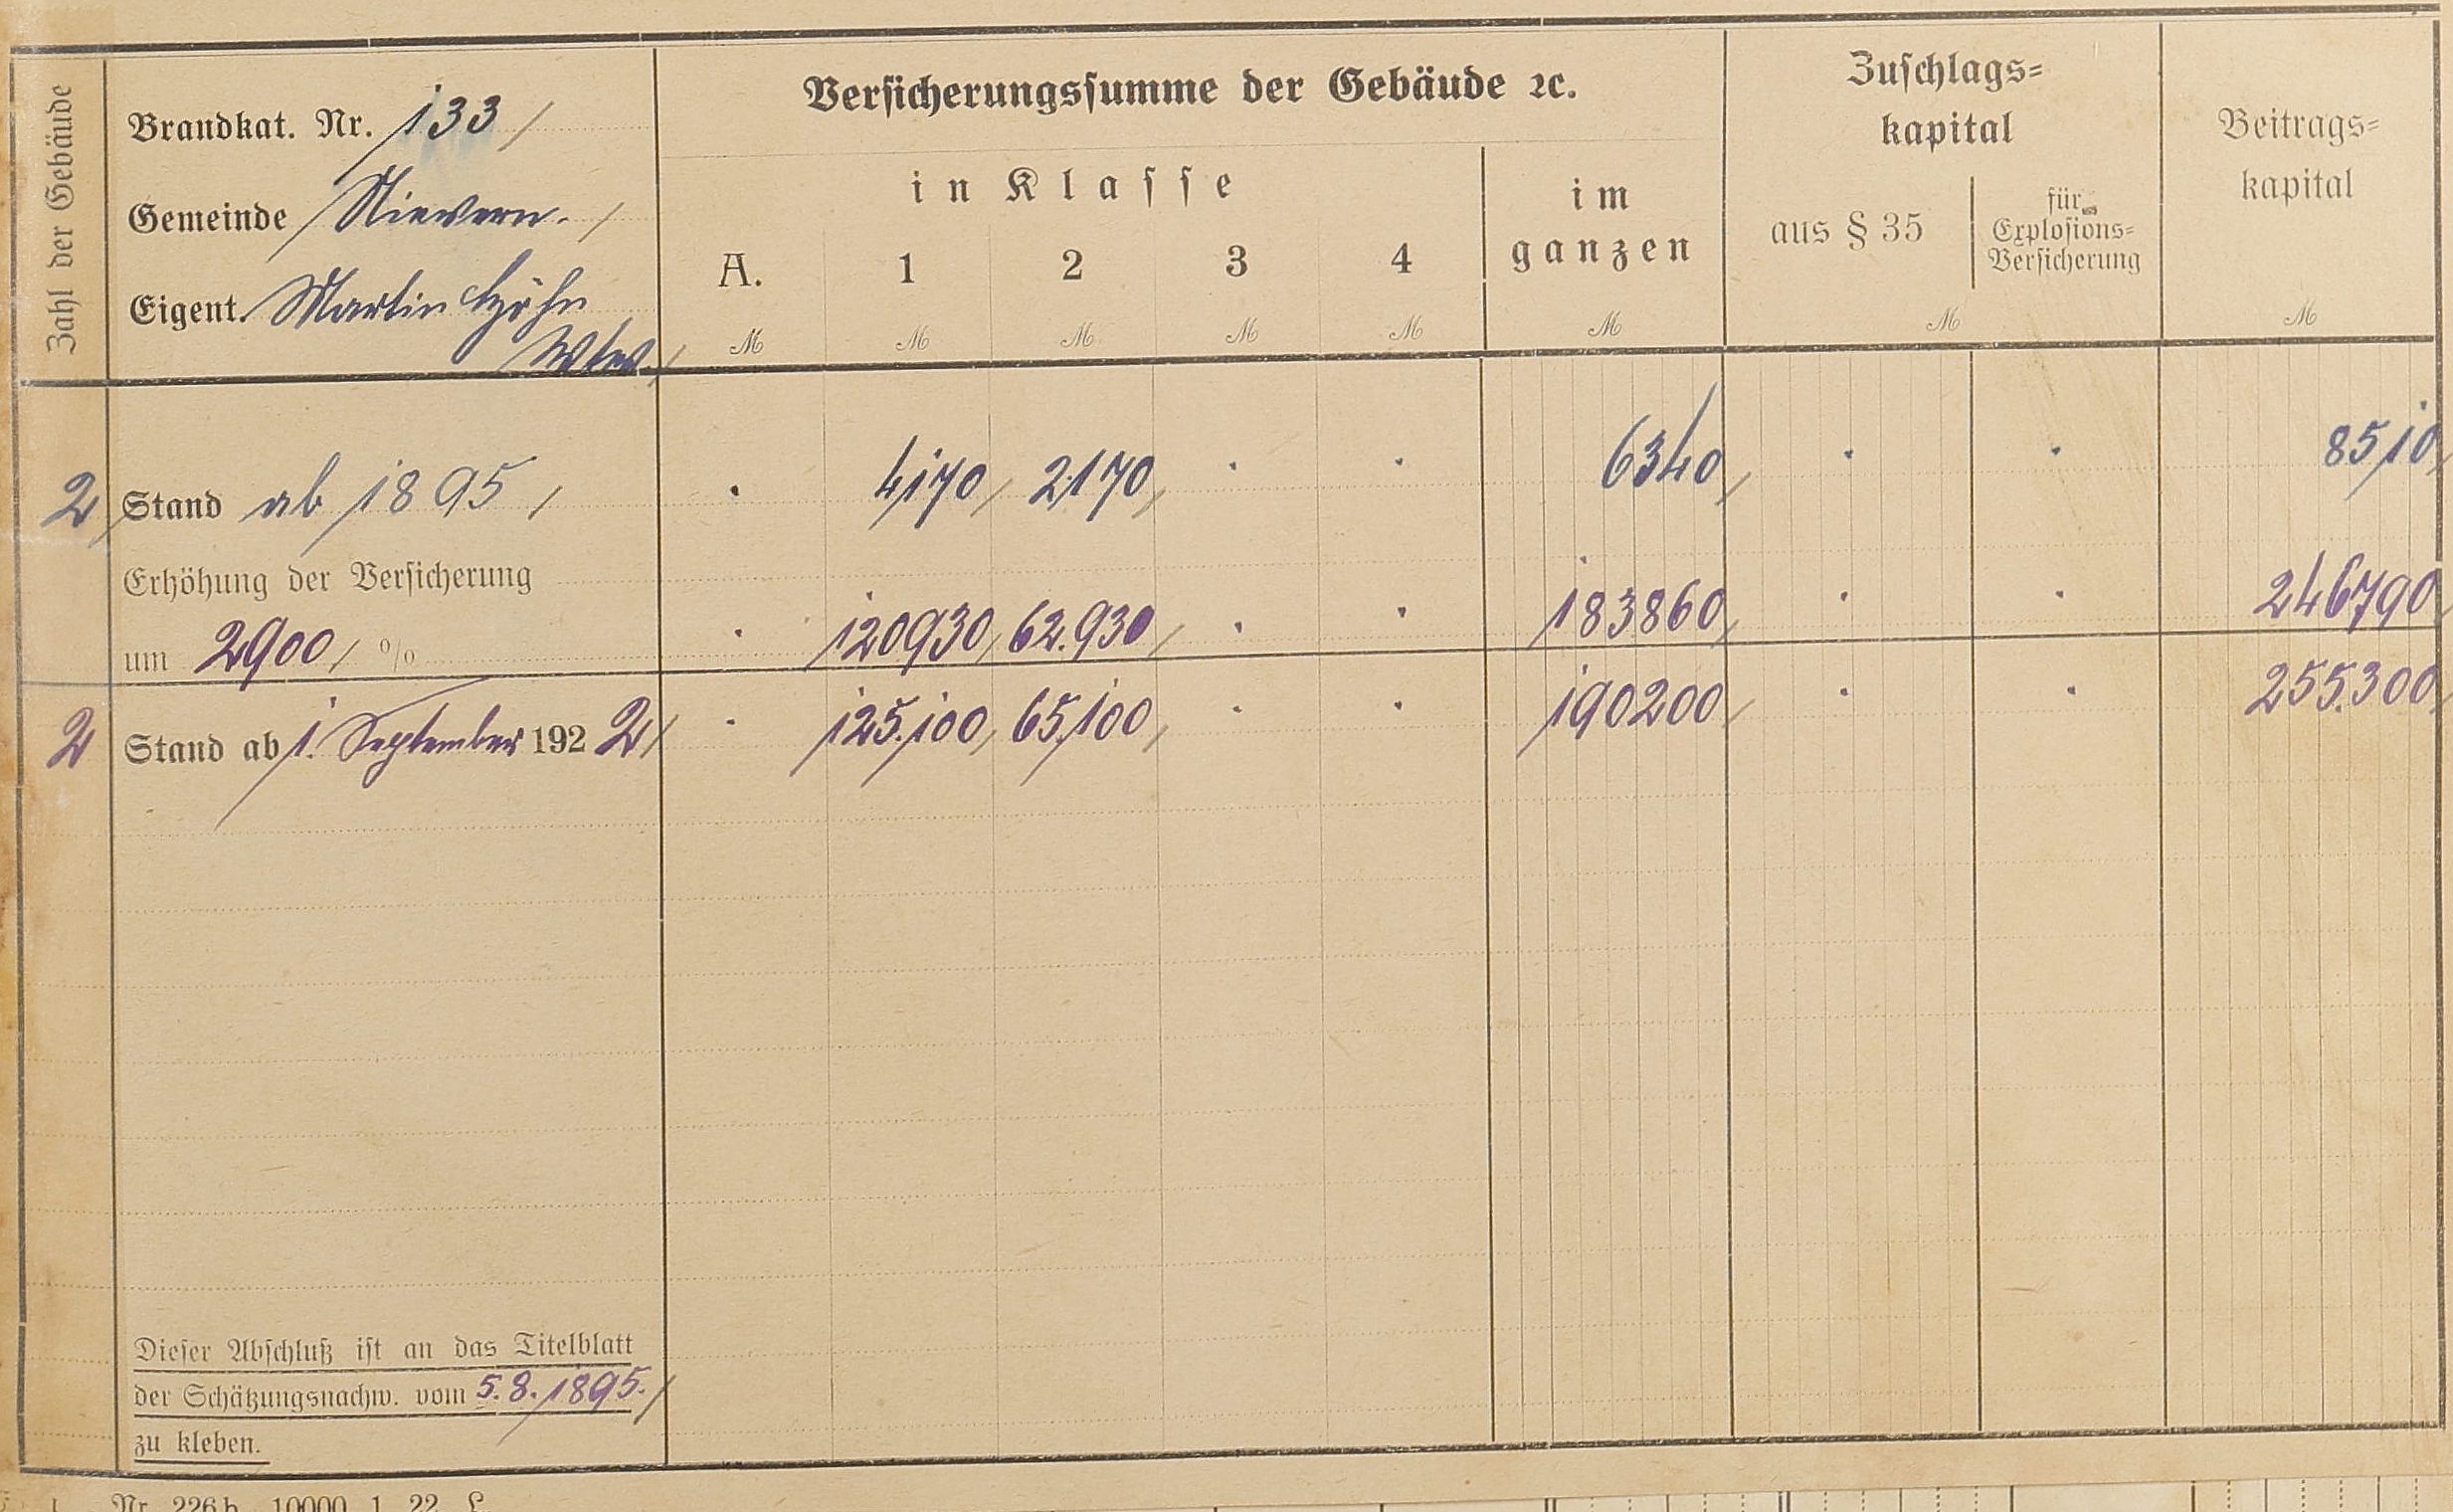 Zahl der Gebäude
Brandkat. Nr. 133
Gemeinde Nievern.
Eigent. Martin Höhn
Wtw.
Versicherungssumme der Gebäude ꝛc.
in Klasse
A. 1 2 3 4
im
ganzen
Zuschlags-
kapital
aus § 35
für
Explosions-
Versicherung
Beitrags-
kapital
ℳ ℳ ℳ ℳ ℳ ℳ ℳ ℳ
2 Stand ab 1895 . 4170 2170 . . 6340 . . 8510
Erhöhung der Versicherung
um 2900 % . 120930 62.930 . . 183860 . . 246790
2 Stand ab 1. September 1922 . 125.100 65.100 . . 190200 . . 255.300
Dieser Abschluß ist an das Titelblatt
der Schätzungsnachw. vom 5.8.1895.
zu kleben.
Nr. 226b. 10000. 1. 22. L.